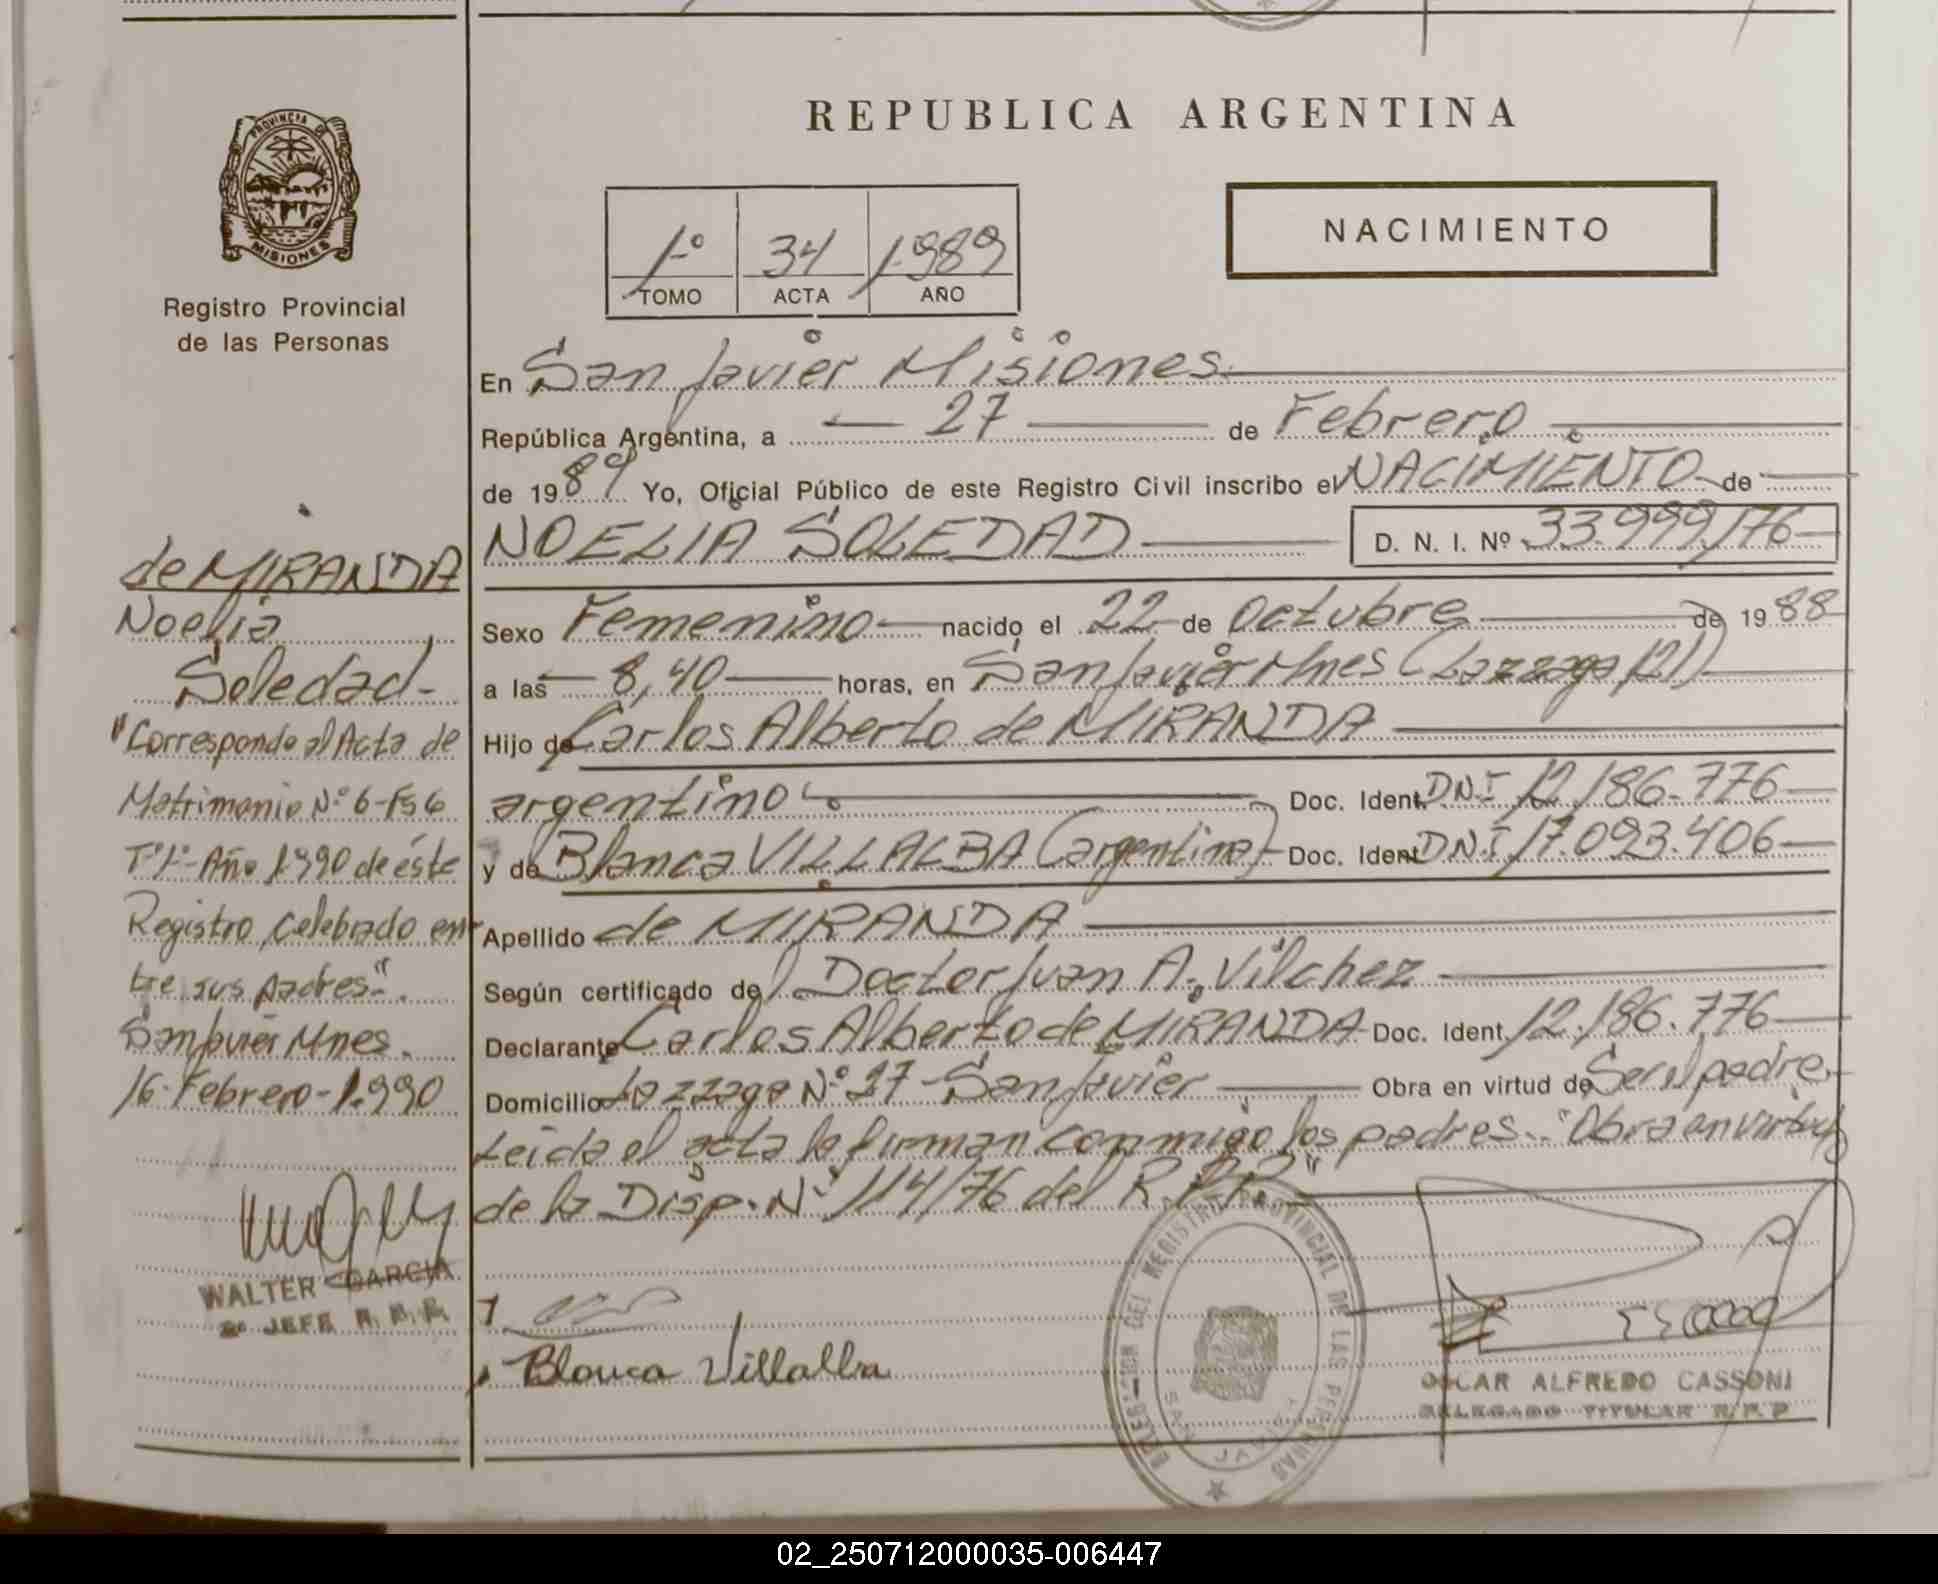 REPUBLICA ARGENTINA
PROVINCIA DE
MISIONES
Registro Provincial
de las Personas
1º 34 1989
TOMO ACTA AÑO
NACIMIENTO
En San Javier Misiones
República Argentina, a 27 de Febrero
de 1989 Yo, Oficial Público de este Registro Civil inscribo el NACIMIENTO de
NOELIA SOLEDAD D. N. I. Nº 33.999.176
Sexo Femenino nacido el 22 de Octubre de 1988
a las 8,40 horas, en San Javier Mnes (Lazzaga 121)
Hijo de Carlos Alberto de MIRANDA
argentino Doc. Ident. DNI 12.186.776
y de Blanca VILLALBA (argentina) Doc. Ident. DNI 17.093.406
Apellido de MIRANDA
Según certificado del Doctor Juan A. Vilchez
Declarante Carlos Alberto de MIRANDA Doc. Ident. 12.186.776
Domicilio Lazzaga Nº 27 San Javier Obra en virtud de Ser el padre
Leida el acta la firman conmigo los padres.- "Obra en virtud
de la Disp. Nº 114/76 del R.P.P."
de MIRANDA
Noelia
Soledad-
"Corresponde al Acta de
Matrimonio Nº 6-Fs 6
Tº 1º- Año 1.990 de éste
Registro, Celebrado en-
tre sus padres".
San Javier Mnes.
16-Febrero-1.990
WALTER GARCIA
2º JEFE R. P. P.
Blanca Villalba
DELEGACION DEL REGISTRO PROVINCIAL DE LAS PERSONAS
SAN JAVIER
OSCAR ALFREDO CASSONI
DELEGADO TITULAR R.P.P
02_250712000035-006447